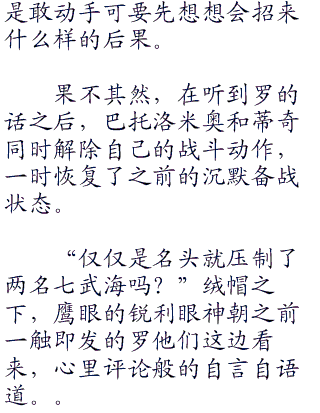 是敢动手可要先想想会招来
什么样的后果。
果不其然，在听到罗的
话之后，巴托洛米奥和蒂奇
同时解除自己的战斗动作，
一时恢复了之前的沉默备战
状态。
“仅仅是名头就压制了
两名七武海吗？”绒帽之
下，鹰眼的锐利眼神朝之前
一触即发的罗他们这边看
来，心里评论般的自言自语
道。。